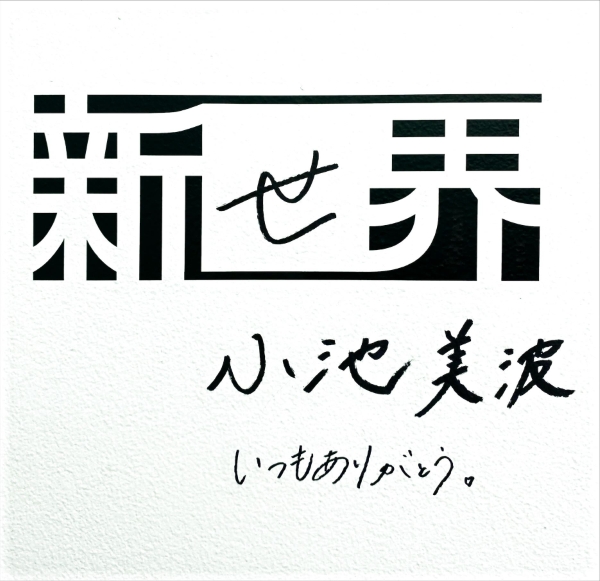 新せ界
小池美波
いつもありがとう。